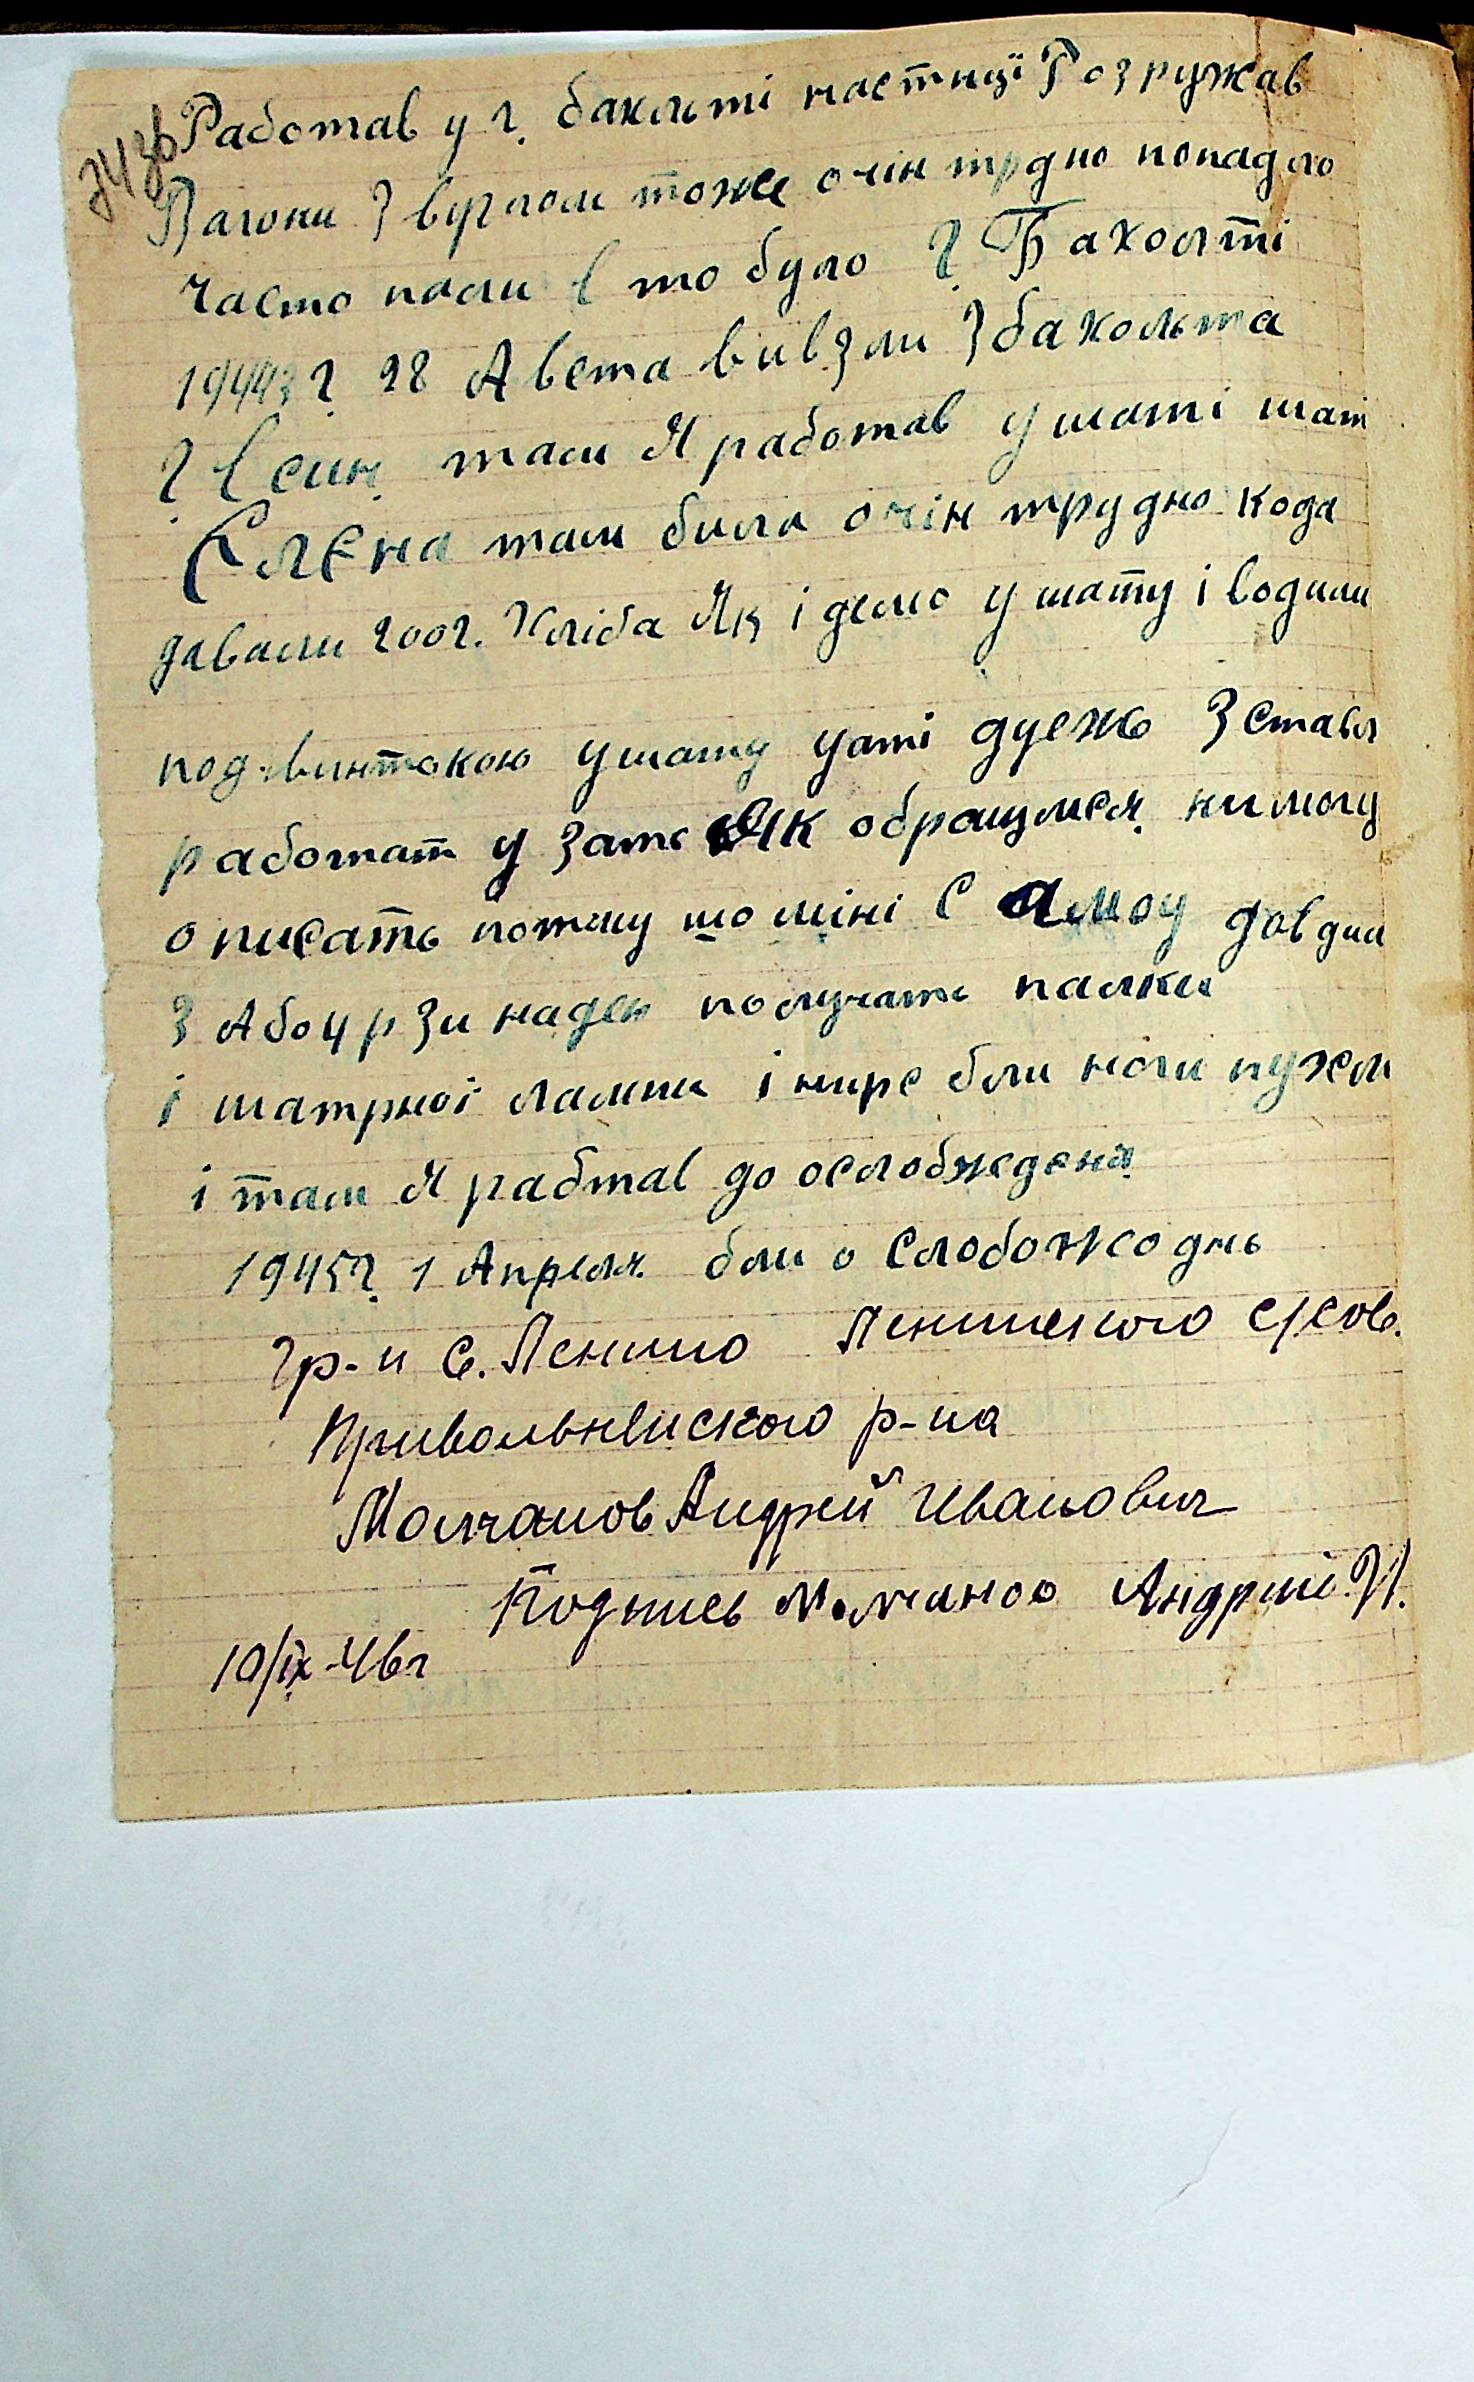 243б
Работав у г. бакльті частнції Розружав
Вагони З вуглом тоже очін трдно попадло
часто пали в то було г. Бахольті
19443 г. 28 Авста вивзли З бахольта
г. Всин. там Я работав у шаті шат
Єлєна там била очін трудно кода
давали 200г. Хліба Як ідемо у шату і водили
под винтокою у шату у аті дуежо Зставл
работат у зате Як обращулися ни могу
описать потму шо міні С амоу довдил
З Або у р Зи наден получать палки
і шатрної лампи і нирє бли ноги пухли
і там Я рабтав до ослобжденя
1945 г. 1 Апреля бли о слобожоднь
гр-н с. Ленино Ленинского с/сов.
Привольнянского р-на
Молчанов Андрей Иванович
Подпись Молчаноо Андрші И.
10/IX-46г